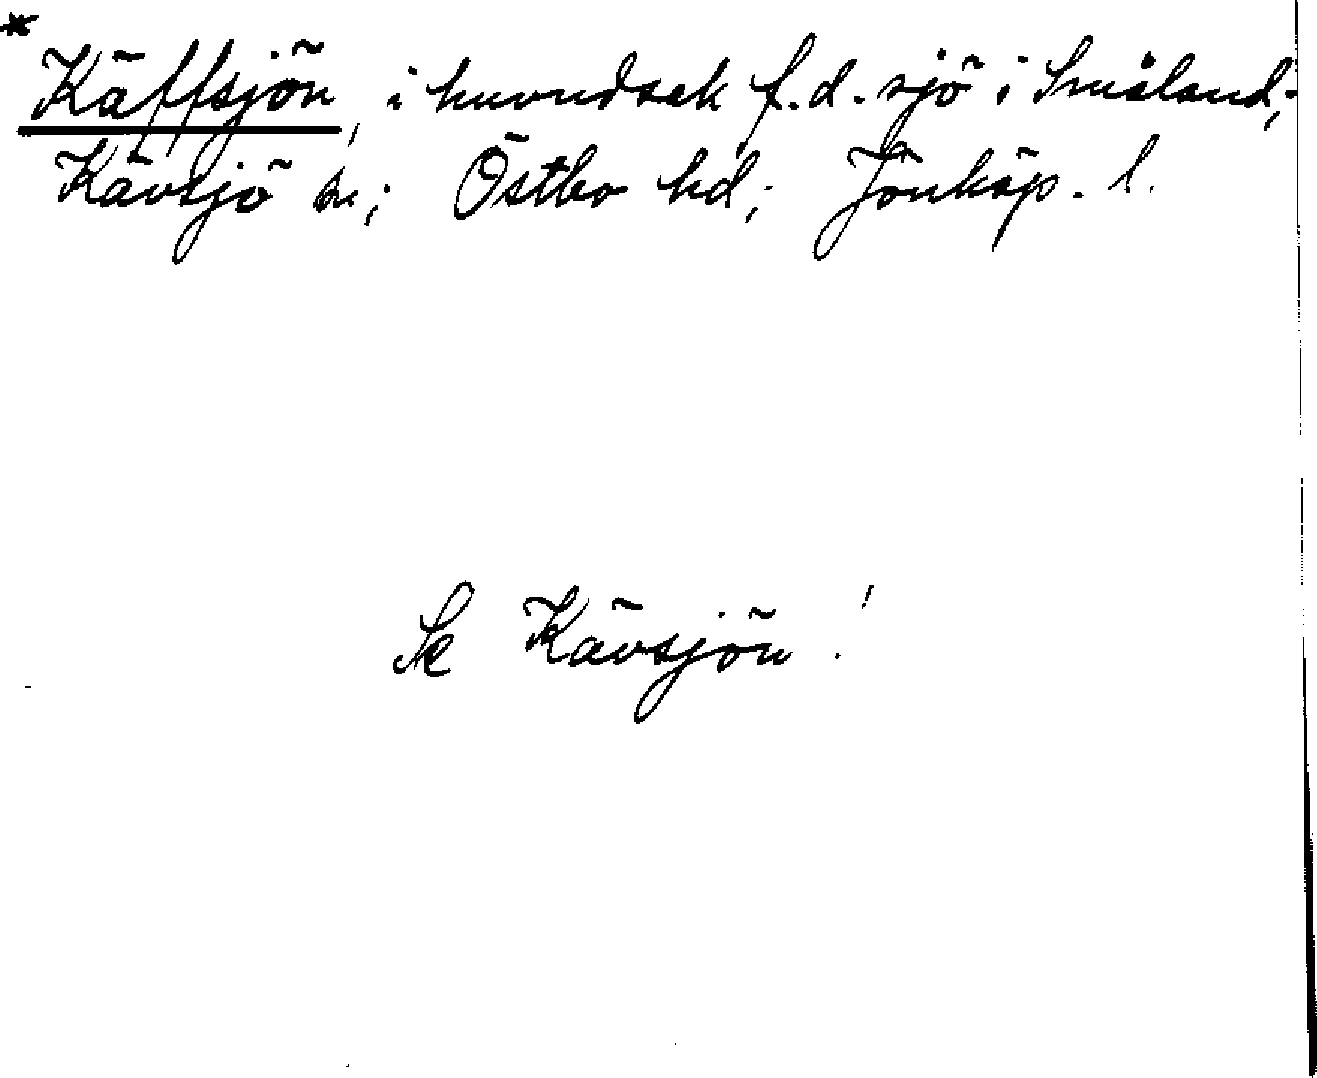 *
Käffsjön, i huvudsak f.d. sjö i Småland;
Kävsjö sn; Östbo hd; Jönköp. l.
Se Kävsjön!